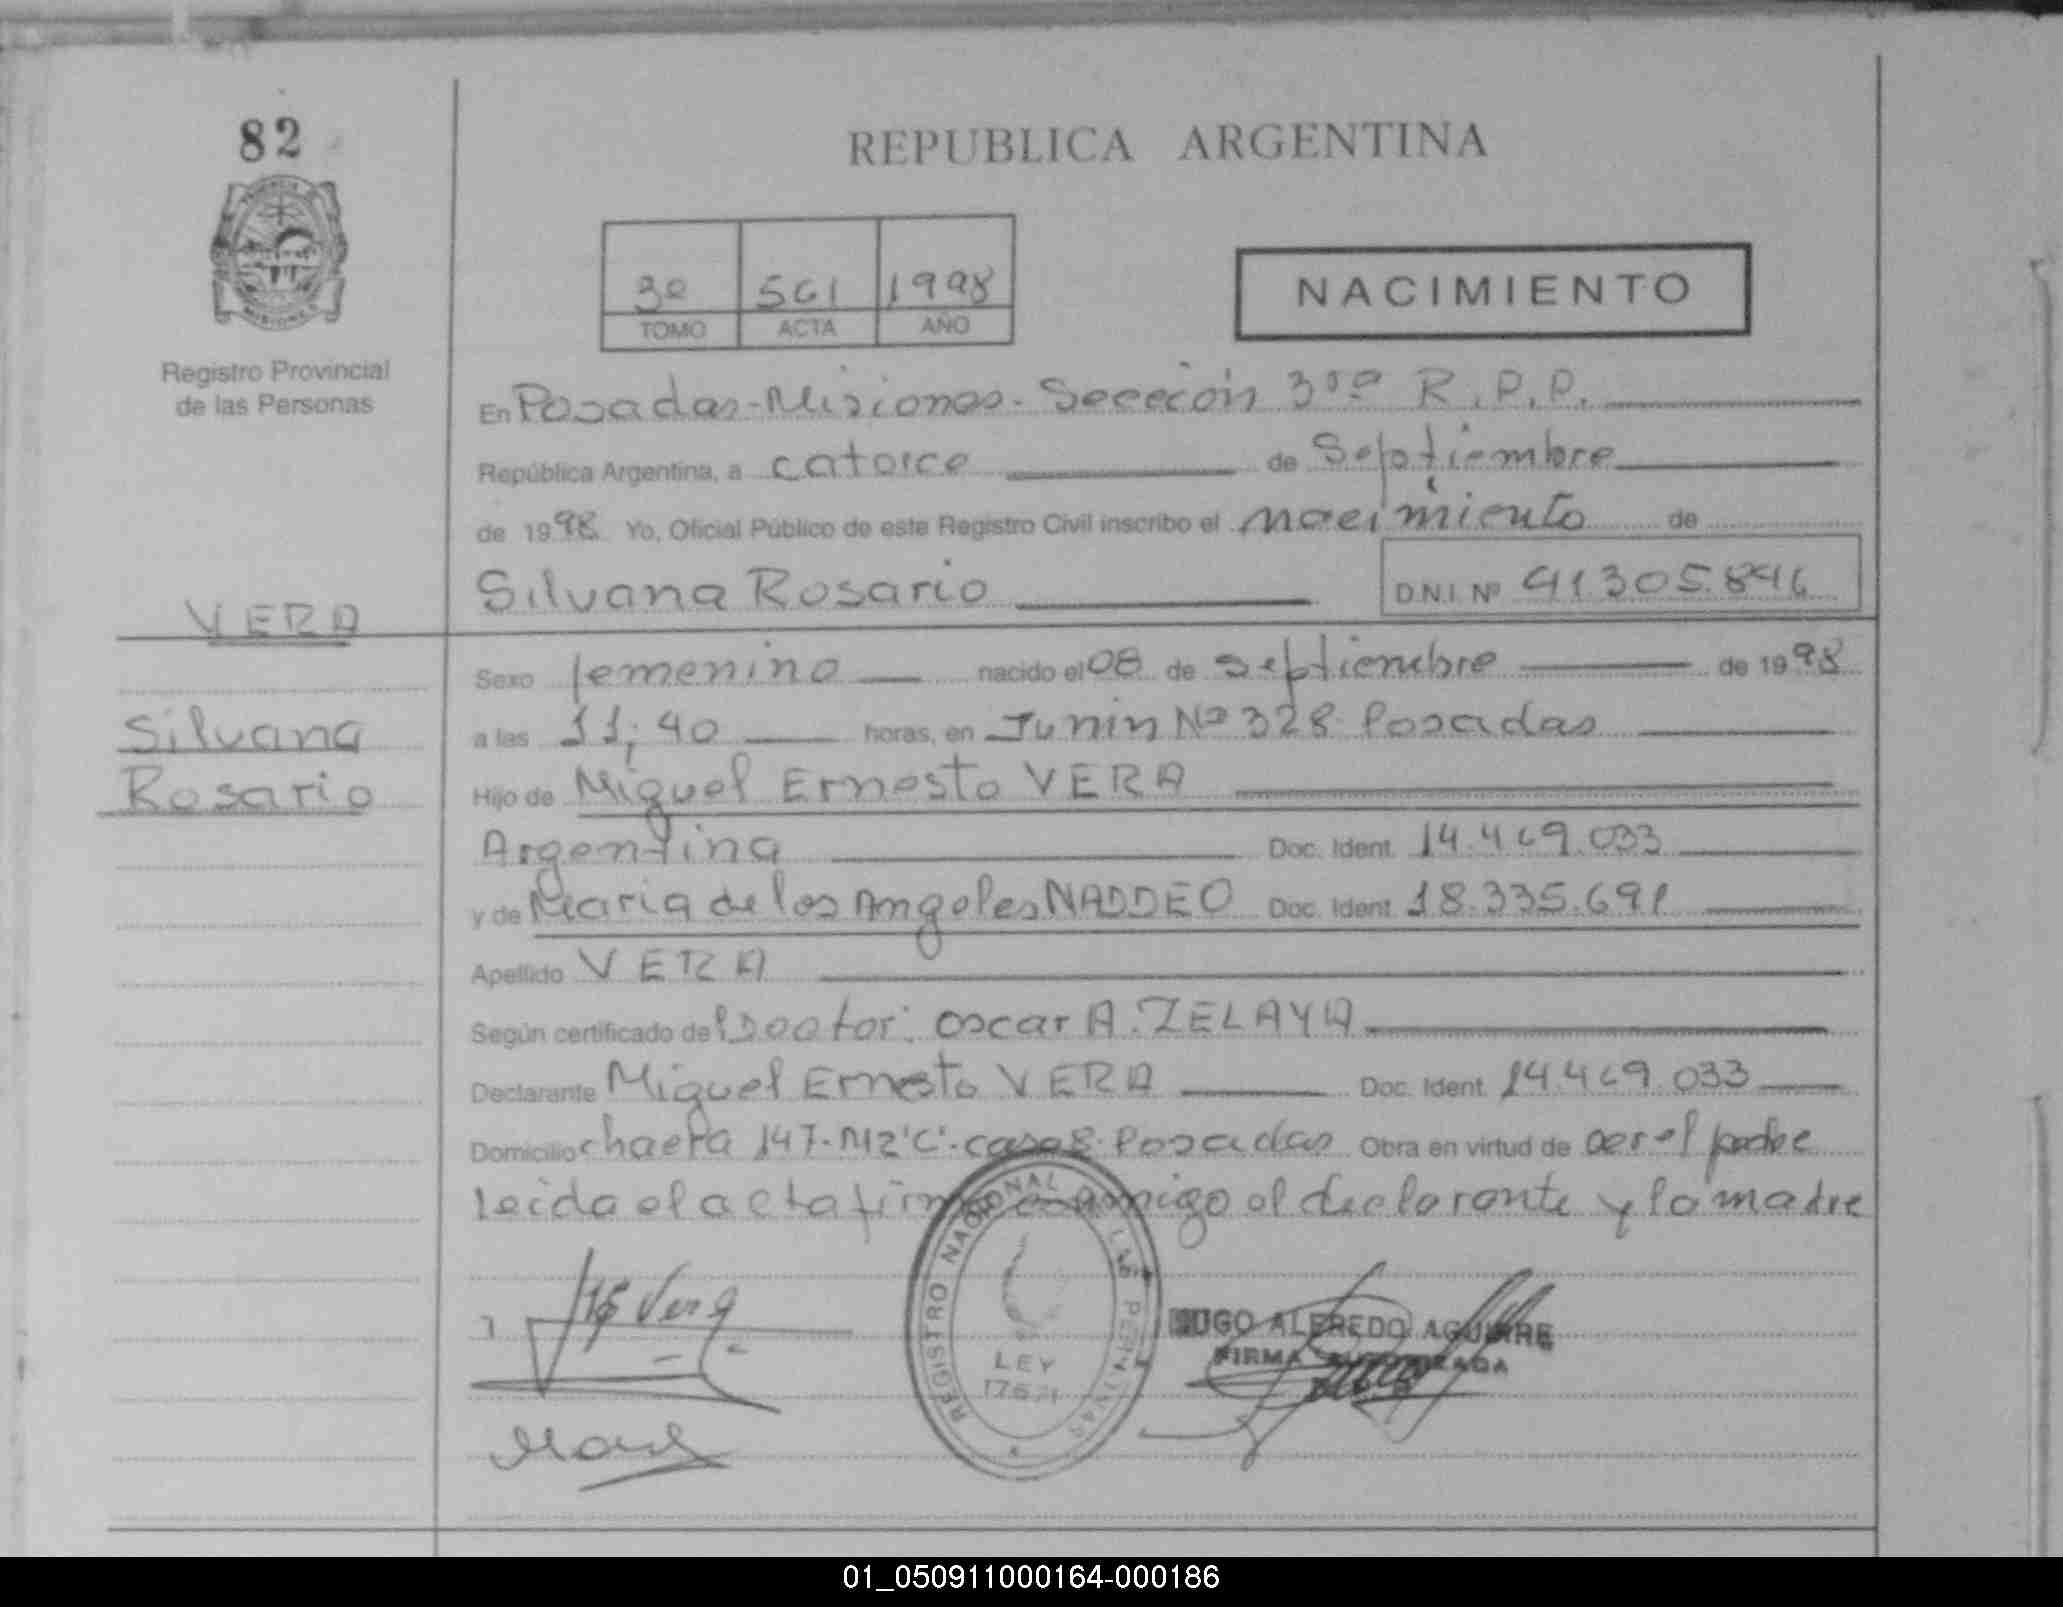 82
REPUBLICA ARGENTINA
3º 561 1998
TOMO ACTA AÑO
NACIMIENTO
Registro Provincial
de las Personas
En Posadas-Misiones. Sección 3ra R.P.P.
República Argentina, a catorce de Septiembre
de 1998 Yo, Oficial Público de este Registro Civil inscribo el nacimiento de
Silvana Rosario D.N.I. Nº 41.305.846
VERA
Silvana
Rosario
Sexo femenino nacido el 08 de septiembre de 1998
a las 11,40 horas, en Junin Nº 328 Posadas
Hijo de Miguel Ernesto VERA
Argentina Doc. Ident. 14.469.033
y de Maria de los Angeles NADDEO Doc. Ident. 18.335.691
Apellido VERA
Según certificado del Doctor: Oscar A. ZELAYA
Declarante Miguel Ernesto VERA Doc. Ident. 14.469.033
Domicilio chacra 147-MZ'C'-casa 8 Posadas Obra en virtud de ser el padre
leida el acta firma conmigo el declarante y la madre
REGISTRO NACIONAL DE LAS PERSONAS
LEY
17671
HUGO ALFREDO AGUIRRE
FIRMA AUTORIZADA
01_050911000164-000186